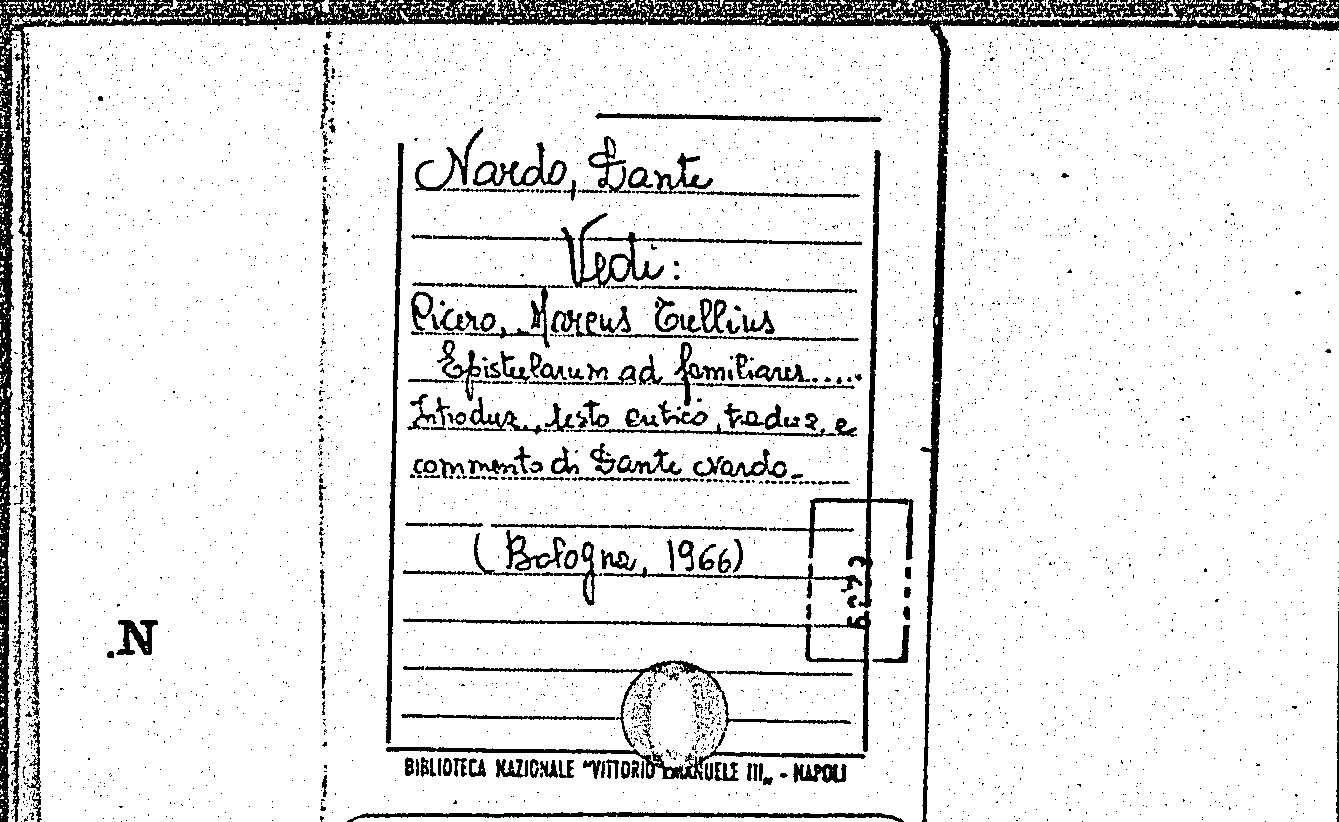 Nardo, Dante
Vedi:
Cicero, Marcus Tullius
Epistularum ad familiares.....
Introduz., testo critico, traduz. e
commento di Dante Nardo-
(Bologna, 1966)
N.
BIBLIOTECA NAZIONALE "VITTORIO EMANUELE III„ - NAPOLI